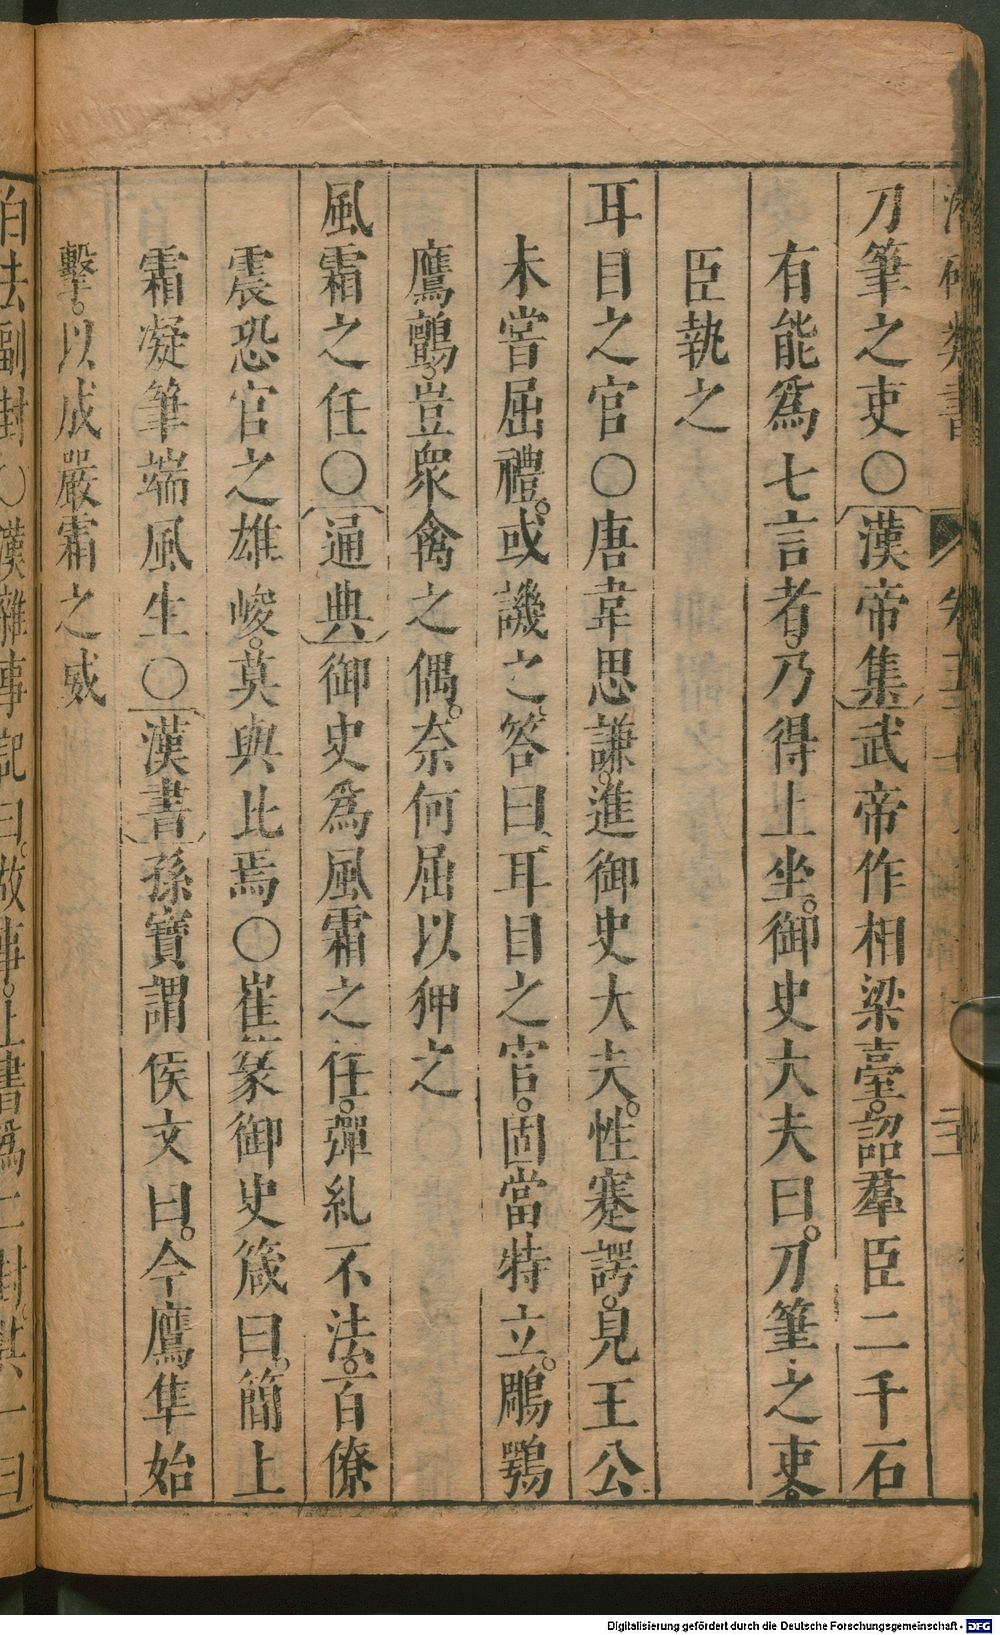 刀筆之吏〇漢帝集武帝作相梁臺。詔羣臣二千石
有能爲七言者。乃得上坐。御史大夫曰。刀筆之吏。
臣執之
耳目之官〇唐韋思謙。進御史大夫。性蹇諤。見王公
未嘗屈禮。或譏之。答曰、耳目之官。固當特立。鵰鶚
鷹鸇。豈衆禽之偶。奈何屈以狎之
風霜之任〇通典御史爲風霜之任。彈糺不法。百僚
震恐官之雄峻。莫與比焉〇崔篆御史箴曰。簡上
霜凝筆端風生〇漢書孫寶謂侯文曰。今鷹隼始
擊。以成嚴霜之威
自法副封〇漢雜事記曰。故事。上書爲二封。其一曰
Digitalisierung gefördert durch die Deutsche Forschungsgemeinschaft - DFG